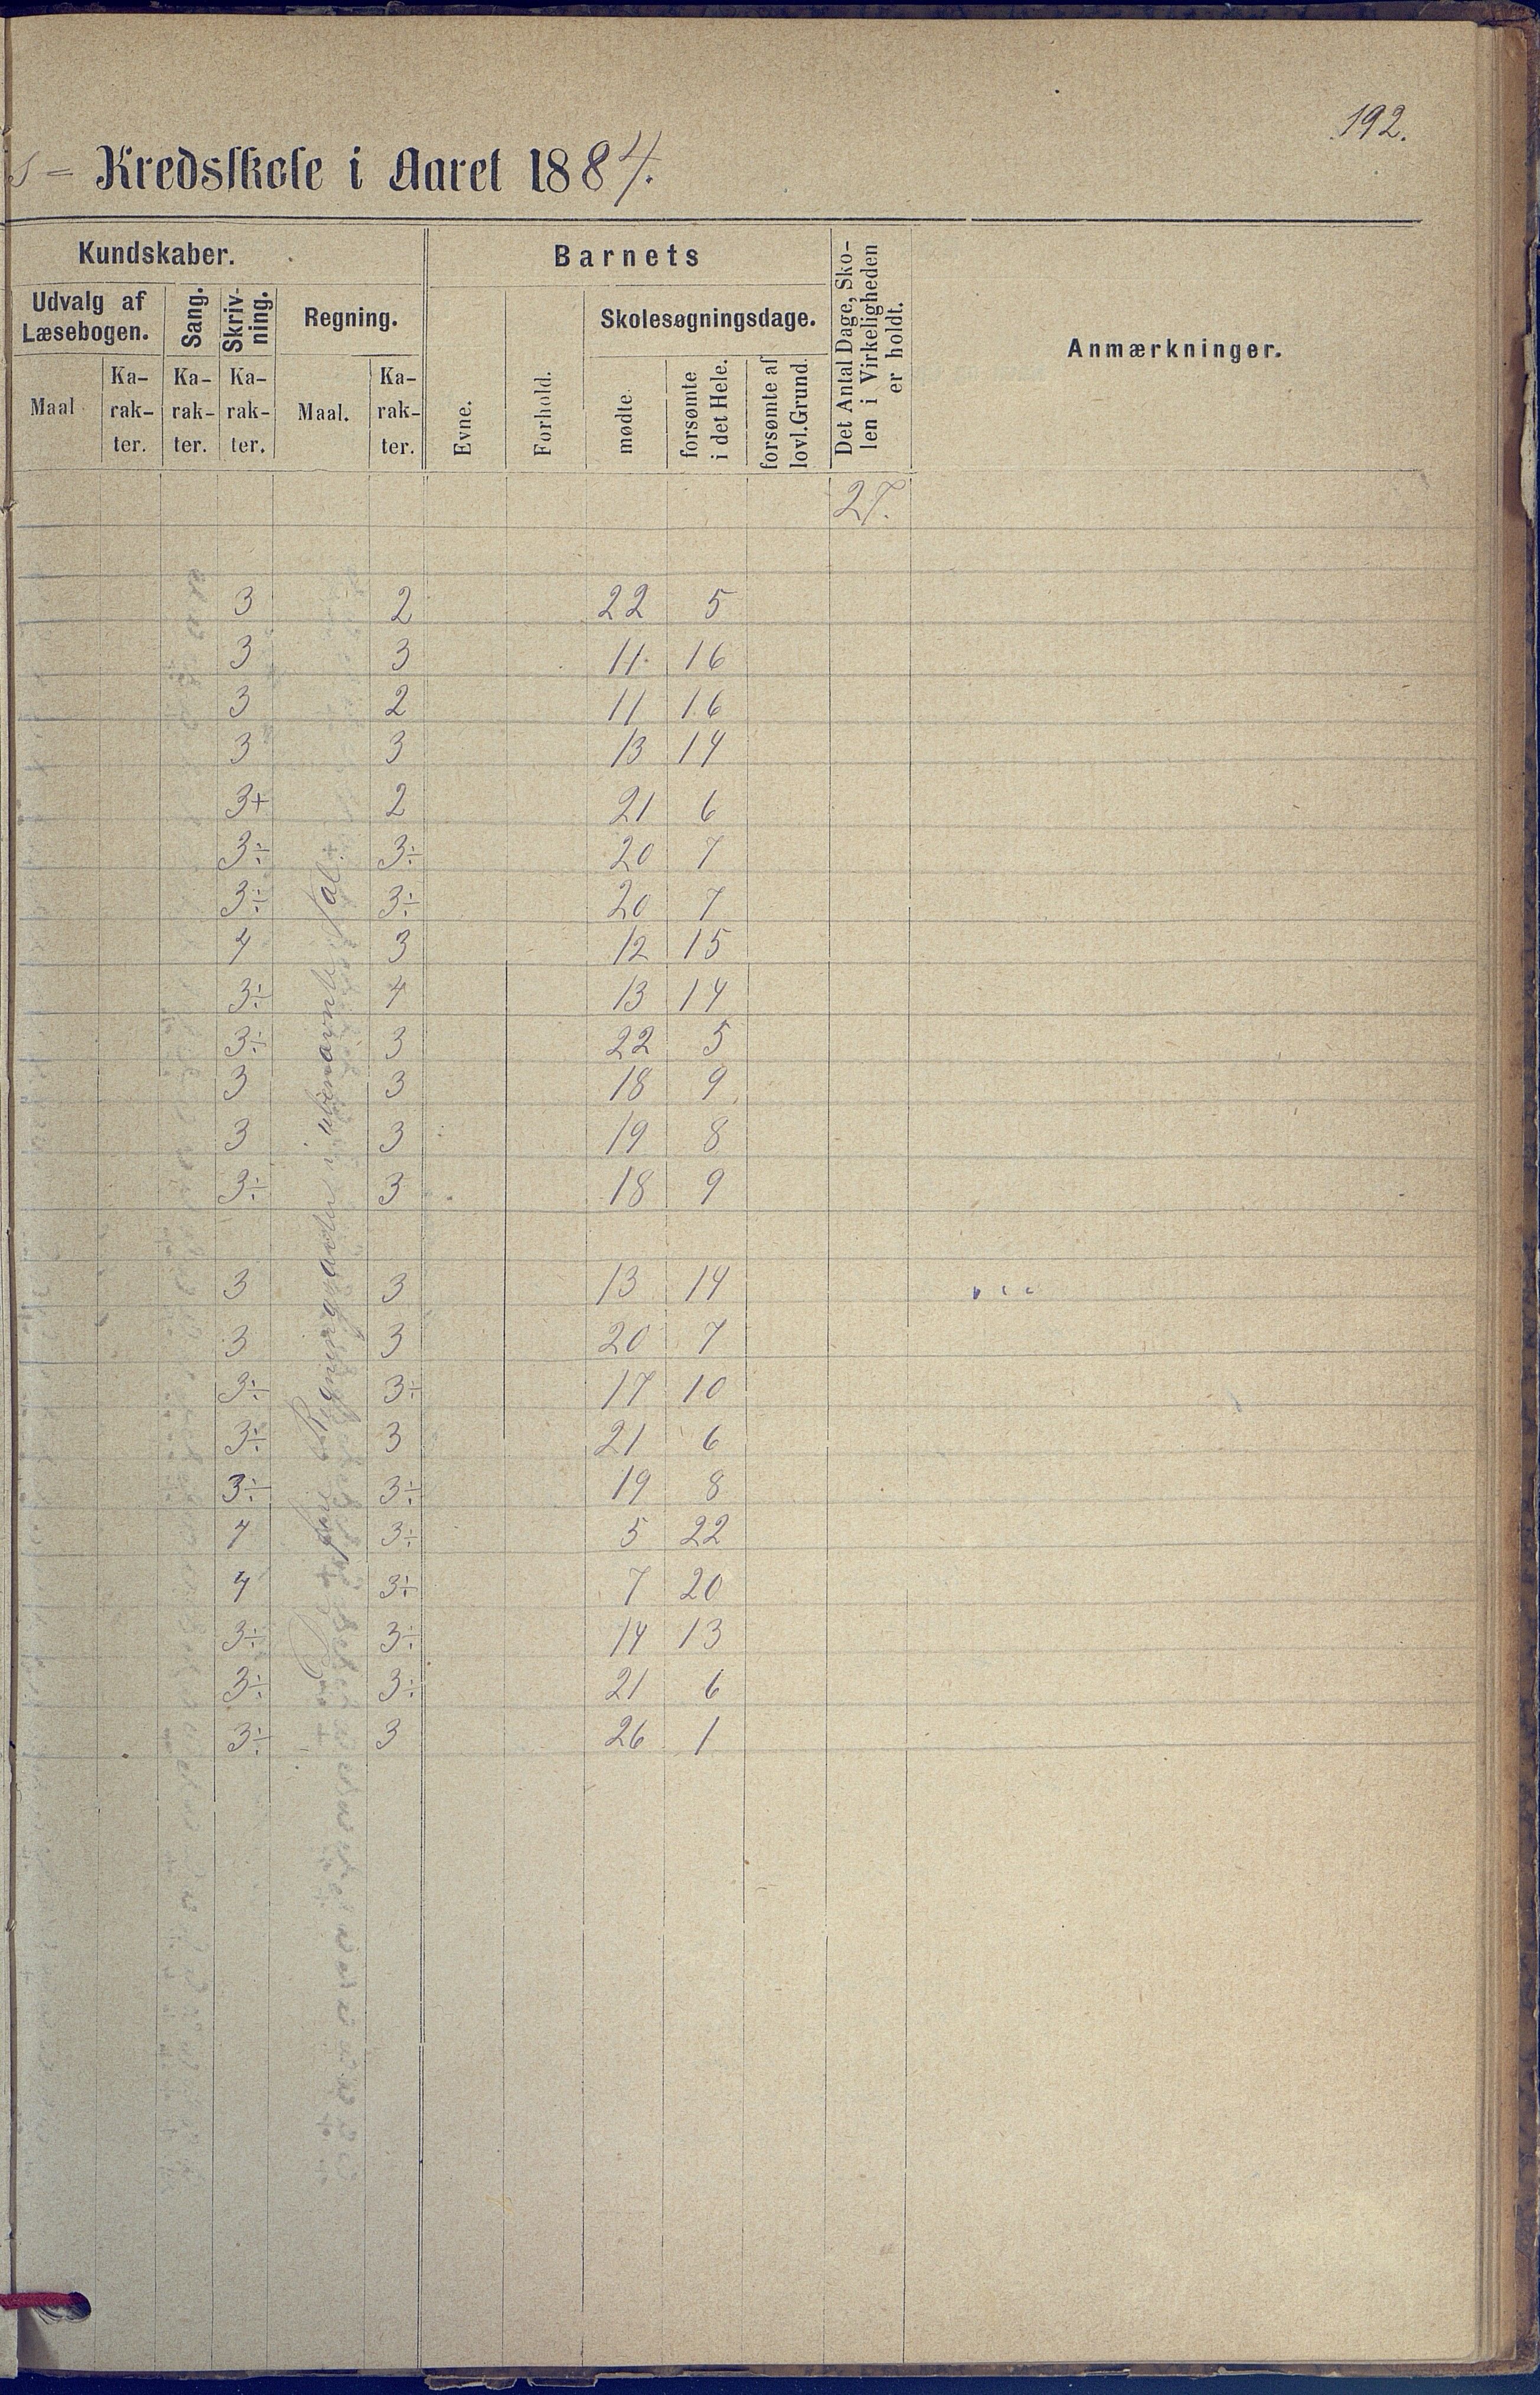 192.
s = Kredsskole i Aaret 1884.
Kundskaber.
Barnets
Det Antal Dage, Sko-
len i Virkeligheden
er holdt.
Anmærkninger.
Udvalg af
Læsebogen.
Sang.
Skriv-
ning.
Regning.
Skolesøgningsdage.
Maal
Ka-
rak-
ter.
Ka-
rak-
ter.
Ka-
rak-
ter.
Maal.
Ka-
rak-
ter.
Evne.
Forhold.
mødte.
forsømte
i det Hele.
forsømte af
lovl. Grund.
27.
3 2 22 5
3 3 11 16
3 2 11 16
3 3 13 14
3+ 2 21 6
3÷ 3÷ 20 7
3÷ 3÷ 20 7
4 3 12 15
3÷ 4 13 14
3÷ 3 22 5
3 3 18 9
3 3 19 8
3÷ 3 18 9
3 3 13 14
3 3 20 7
3÷ 3÷ 17 10
3÷ 3 21 6
3÷ 3÷ 19 8
4 3÷ 5 22
4 3÷ 7 20
3÷ 3÷ 14 13
3÷ 3÷ 21 6
3÷ 3 26 1
fire Regningsarter i ubenævnte Tal.